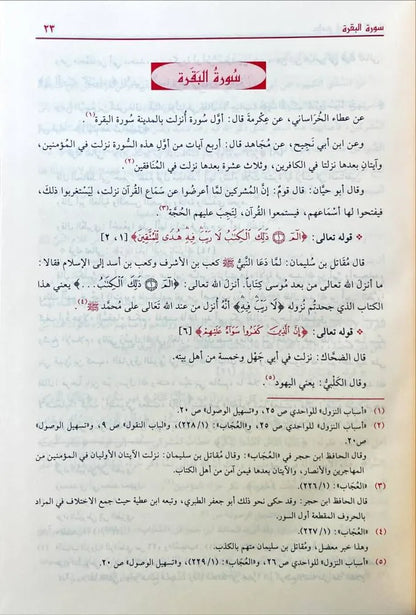 سورة البقرة ٢٣
سُورَةُ البَقَرَة
عن عطاء الخُرَاساني، عن عِكرمةَ قال: أوَّل سُورة أُنزلت بالمدينة سُورة البقرة(١).
وعن ابن أبي نَجِيح، عن مُجَاهد قال: أربع آيات من أوَّل هذه السُّورة نزلت في المؤمنين،
وآيتانِ بعدها نزلتا في الكافرين، وثلاث عشرة بعدها نزلت في المُنَافقين(٢).
وقال أبو حيَّان: قال قومٌ: إنَّ المُشركين لمَّا أعرضُوا عن سَمَاع القرآن نزلت، لِيَستغربوا ذلك،
فيفتحوا لها أسْمَاعهم، فيستمعوا القرآن، لِتَجِبَ عليهم الحُجَّة(٣).
* قوله تعالى: ﴿الٓمٓ ۝١ ذَٰلِكَ ٱلْكِتَٰبُ لَا رَيْبَ فِيهِ هُدًى لِّلْمُتَّقِينَ﴾ [١، ٢]
قال مُقَاتل بن سليمان: لمَّا دَعَا النَّبيُّ ﷺ كعب بن الأشرف وكعب بن أسد إلى الإسلام فقالا:
ما أنزلَ الله من بعد موسى كِتَاباً. أنزلَ الله تعالى: ﴿الٓمٓ ۝١ ذَٰلِكَ ٱلْكِتَٰبُ...﴾ يعني هذا
الكتاب الذي جحدتُم نُزوله ﴿لَا رَيْبَ فِيهِ﴾ أنَّه أُنزل من عند الله تعالى على مُحمَّد ﷺ(٤).
* قوله تعالى: ﴿إِنَّ ٱلَّذِينَ كَفَرُوا۟ سَوَآءٌ عَلَيْهِمْ﴾ [٦]
قال الضحَّاك: نزلت في أبي جَهْل وخمسة من أهل بيته.
وقال الكَلْبيُّ: يعني اليهود(٥).
(١) «أسباب النزول» للواحدي ص ٢٥، و«تسهيل الوصول» ص ٢٠.
(٢) «أسباب النزول» للواحدي ص ٢٥، و«العُجَاب»: (١/ ٢٢٨)، و«لباب النقول» ص ٩، و«تسهيل الوصول»
ص ٢٠.
وقال الحافظ ابن حجر في «العُجَاب»: وقال مُقاتل بن سليمان: نزلت الآيتان الأوليان في المؤمنين من
المهاجرين والأنصار، والآيتان بعدها فيمن آمن من أهل الكتاب.
(٣) «العُجَاب»: (١/ ٢٢٦).
قال الحافظ ابن حجر: وقد حكى نحو ذلك أبو جعفر الطبري، وتبعه ابن عطية حيث جمع الاختلاف في المراد
بالحروف المقطعة أول السور.
(٤) «العُجَاب»: (١/ ٢٢٧).
وهذا خبر معضل، ومُقاتل بن سليمان متهم بالكذب.
(٥) «أسباب النزول» للواحدي ص ٢٦، و«العُجَاب»: (١/ ٢٢٩)، و«تسهيل الوصول» ص ٢٠.